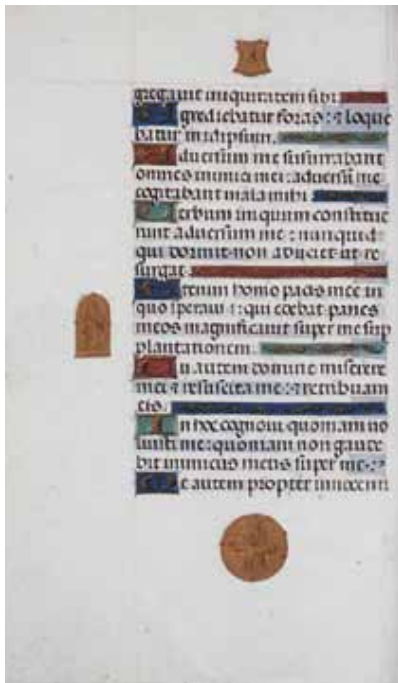 gregavit iniquitatem sibi
Egrediebatur foras: et loque
batur in idipsum.
Adversum me susurrabant
omnes inimici mei: adversu me
cogitabant mala mihi.
Verbum iniquum constitue
runt adversum me: nunquid
qui dormit non adiiciet ut re
surgat.
Etenim homo pacis mee in
quo speravi: qui edebat panes
meos magnificavit super me sup
plantationem.
Tu autem domine miserere
mei et resuscita me: et retribuam
eis.
In hoc cognovi quoniam vo
luisti me: quoniam non gaude
bit inimicus meus super me
Me autem propter innocenti